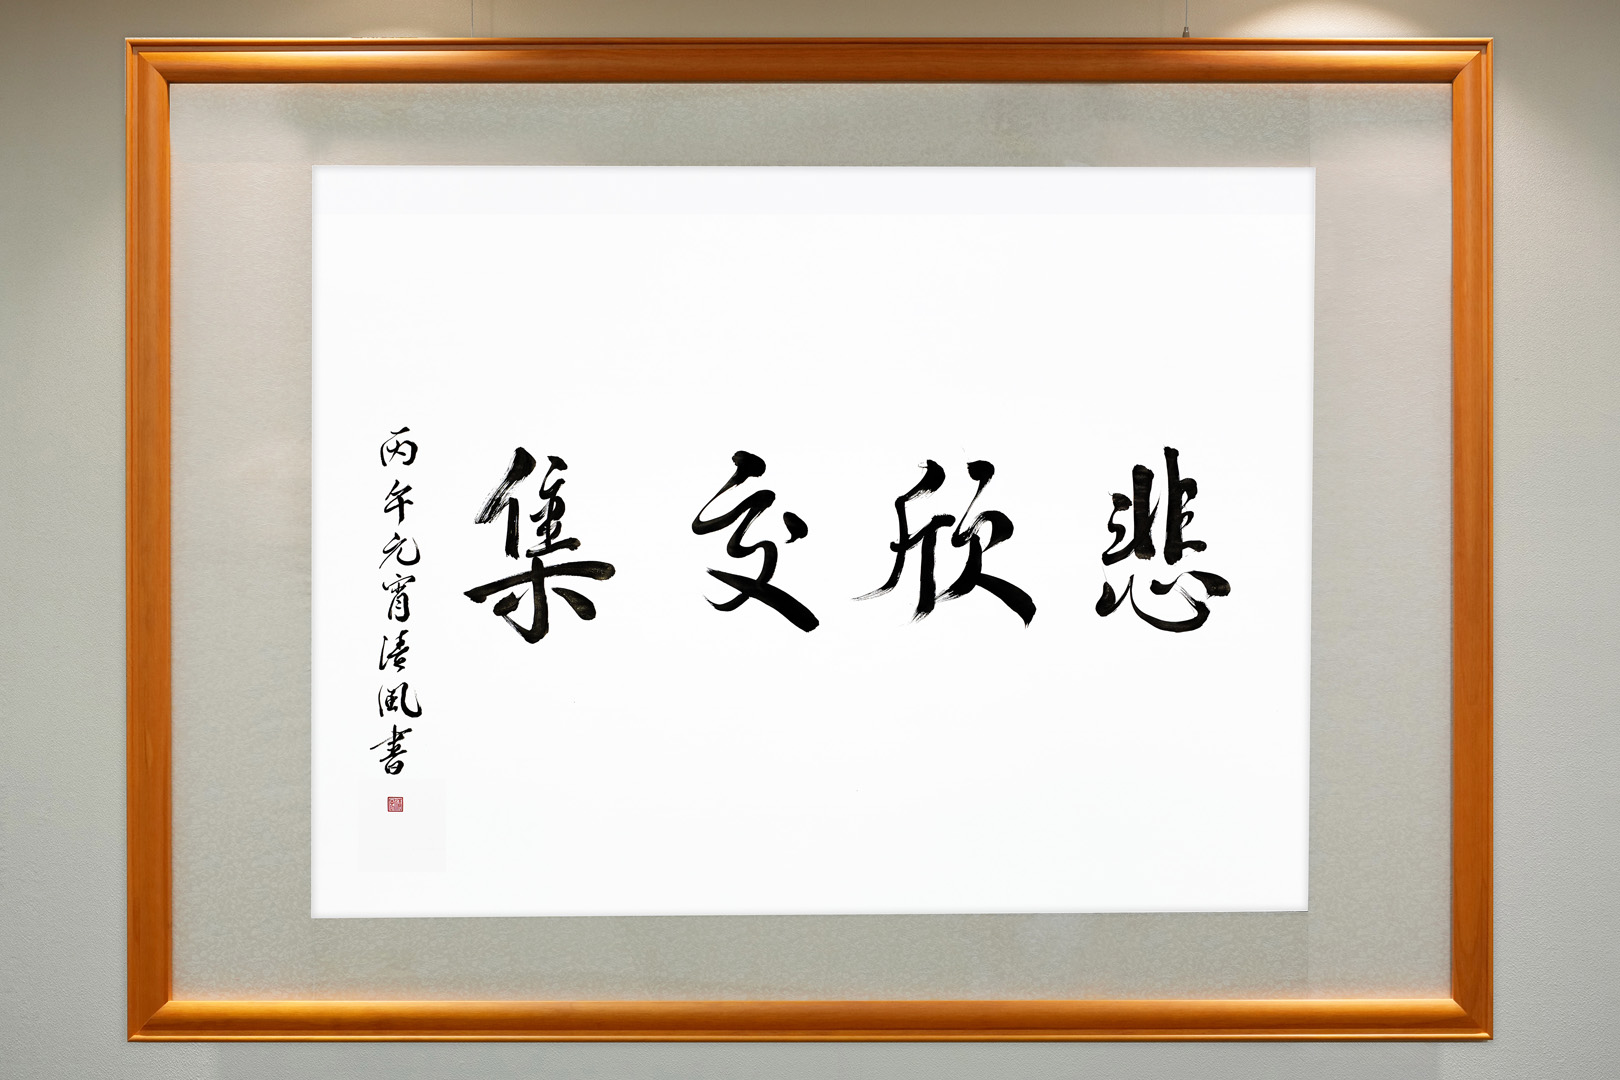 悲欣交集
丙午元宵清風書